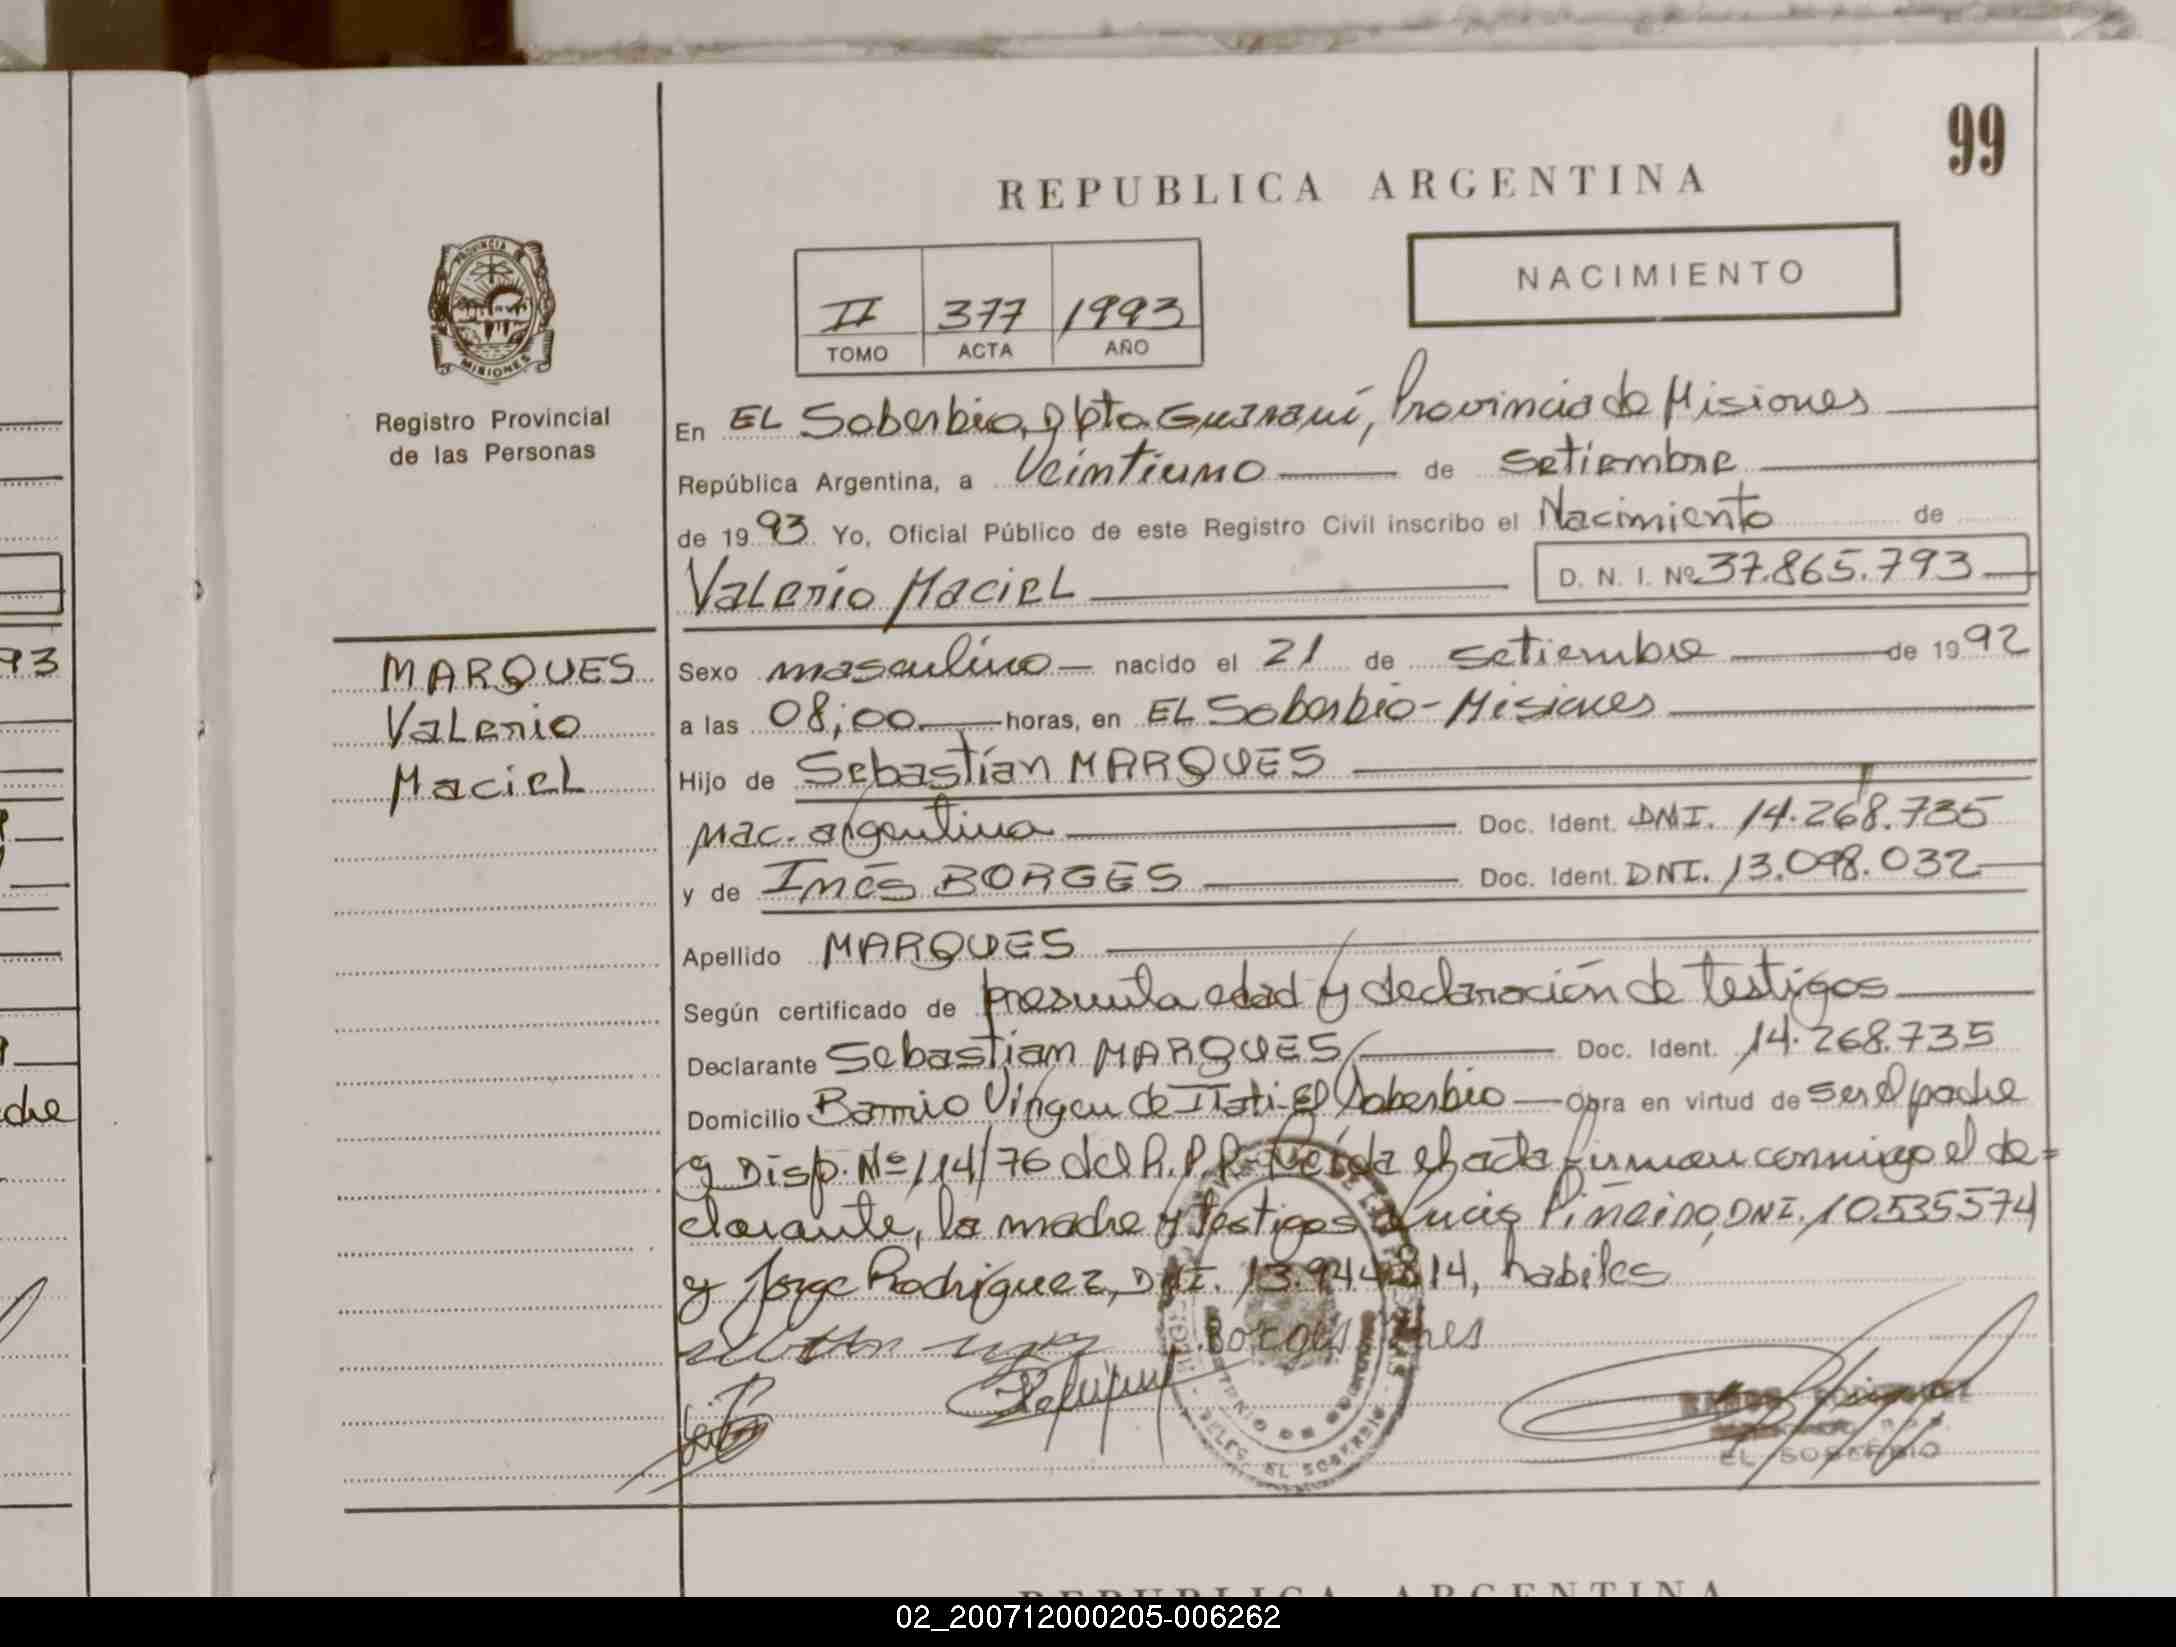 99
REPUBLICA ARGENTINA
PROVINCIA
MISIONES
Registro Provincial
de las Personas
II 377 1993
TOMO ACTA AÑO
NACIMIENTO
En EL Soberbio, Dpto Guaraní, Provincia de Misiones
República Argentina, a Veintiuno de Setiembre
de 1993 Yo, Oficial Público de este Registro Civil inscribo el Nacimiento de
Valerio Maciel D. N. I. Nº 37.865.793
MARQUES
Valerio
Maciel
Sexo masculino nacido el 21 de Setiembre de 1992
a las 08;00 horas, en EL Soberbio - Misiones
Hijo de Sebastián MARQUES
nac. argentina Doc. Ident. DNI. 14.268.735
y de Inés BORGES Doc. Ident. DNI. 13.098.032
Apellido MARQUES
Según certificado de presunta edad y declaración de testigos
Declarante Sebastian MARQUES Doc. Ident. 14.268.735
Domicilio Barrio Virgen de Itati-El Soberbio Obra en virtud de ser el padre
y Disp. Nº 114/76 del R.P.P. Leída el acta firman conmigo el de=
clarante, la madre y testigos Lucio Piñeiro, DNI. 10535574
y Jorge Rodriguez, DNI. 13.944814, habiles
Borges Ines
EL SOBERBIO
DELEG. EL SOBERBIO
93
dre
REPUBLICA ARGENTINA
02_200712000205-006262